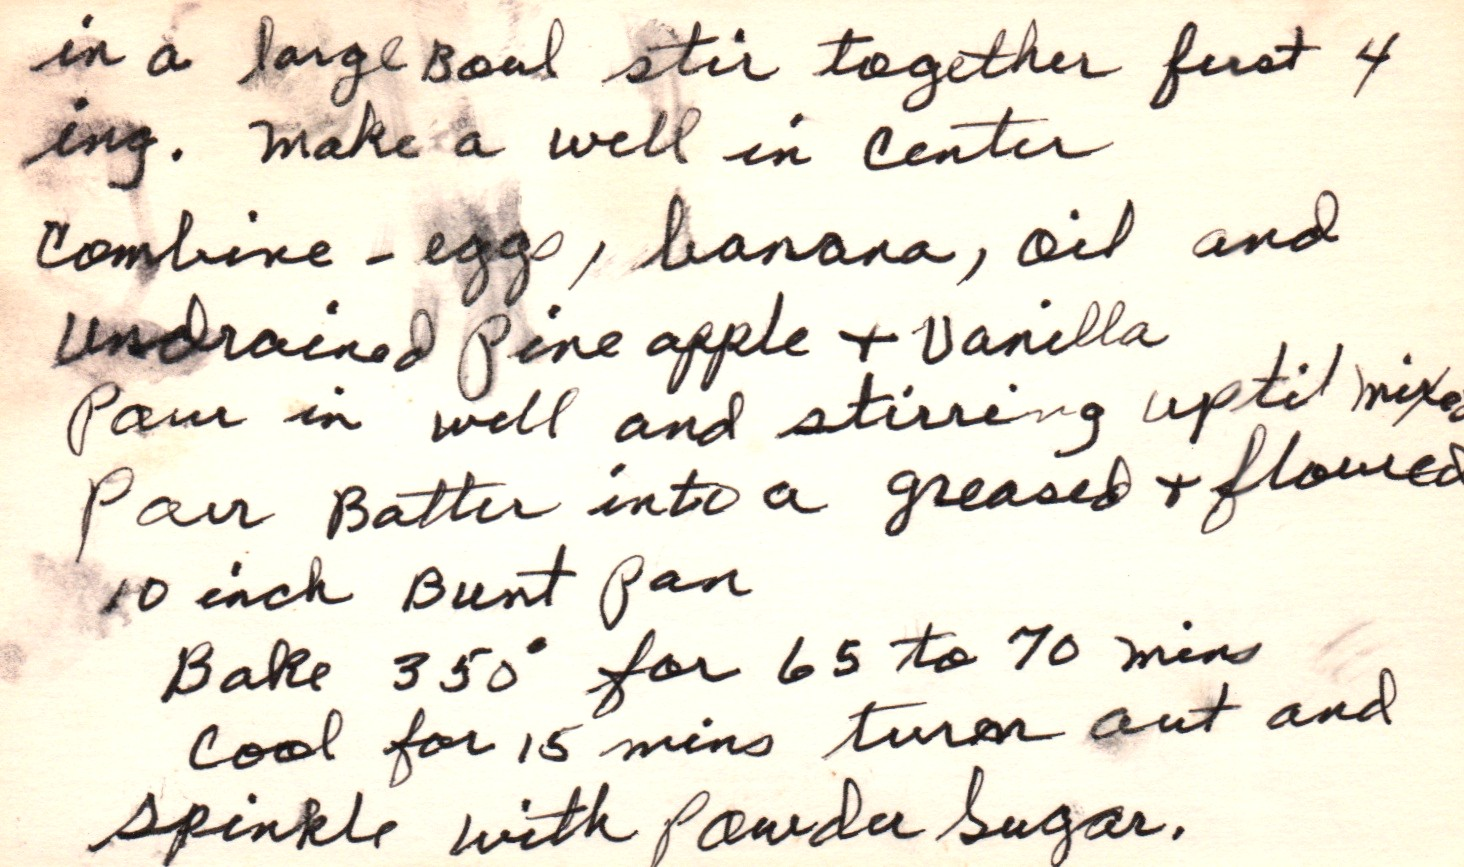 in a large Bowl stir together first 4
ing. Make a well in Center
Combine - eggs, banana, oil and
Undrained Pineapple + Vanilla
Pour in well and stirring uptil mixed
Pour Batter into a greased + floured
10 inch Bunt Pan
Bake 350° for 65 to 70 mins
Cool for 15 mins turn out and
Spinkle with Powder Sugar.